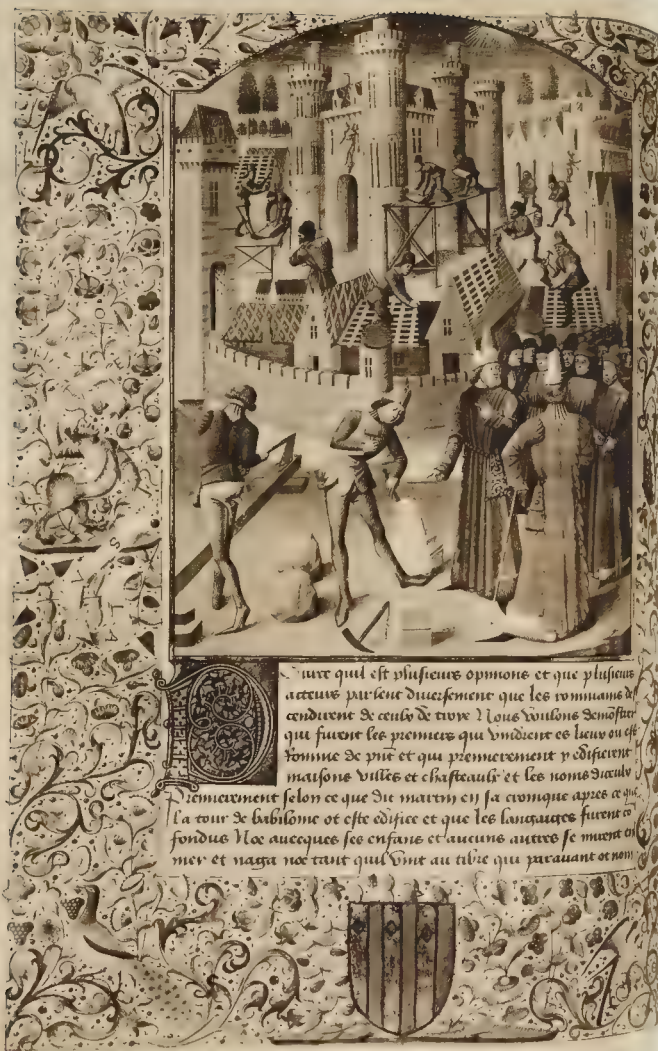 ource quil est plusieurs opinions et que plusieurs
acteurs parlent diversement que les rommains des
cendirent de ceulx de troye Nous voulons demõstrer
qui furent les premiers qui vindrent es lieux ou est
Romme de pñt et qui premierement y edifierent
maisons villes et chasteaulx et les noms diceulx
Premierement selon ce que dit martin en sa cronique apres ce que
la tour de babilonne ot este edifiee et que les langaiges furent cõ
fondus Noe avecques ses enfans et aucuns autres se mirent en
mer et naga noe tant quil vint au tibre qui paravant ot nom